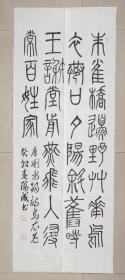 朱雀橋邊野草花烏
衣巷口夕陽斜舊時
王謝堂前燕飛入尋
常百姓家
唐劉禹錫詩烏衣巷